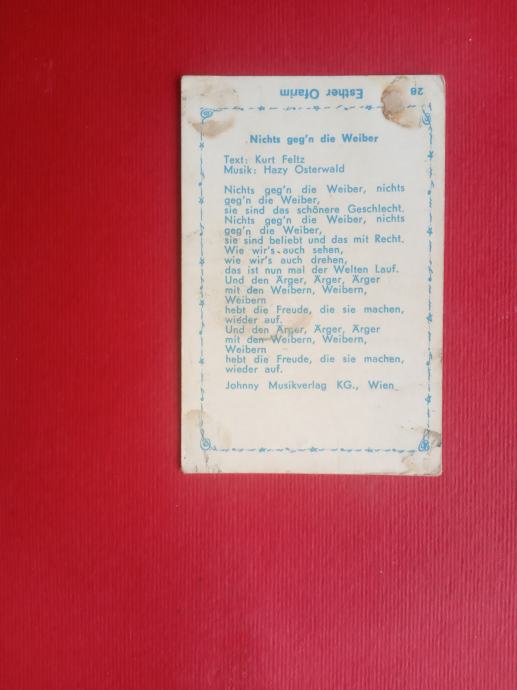 28 Esther Ofarim
Nichts geg'n die Weiber
Text: Kurt Feltz
Musik: Hazy Osterwald
Nichts geg'n die Weiber, nichts
geg'n die Weiber,
sie sind das schönere Geschlecht.
Nichts geg'n die Weiber, nichts
geg'n die Weiber,
sie sind beliebt und das mit Recht.
Wie wir's auch sehen,
wie wir's auch drehen,
das ist nun mal der Welten Lauf.
Und den Ärger, Ärger, Ärger
mit den Weibern, Weibern,
Weibern
hebt die Freude, die sie machen,
wieder auf.
Und den Ärger, Ärger, Ärger
mit den Weibern, Weibern,
Weibern
hebt die Freude, die sie machen,
wieder auf.
Johnny Musikverlag KG., Wien